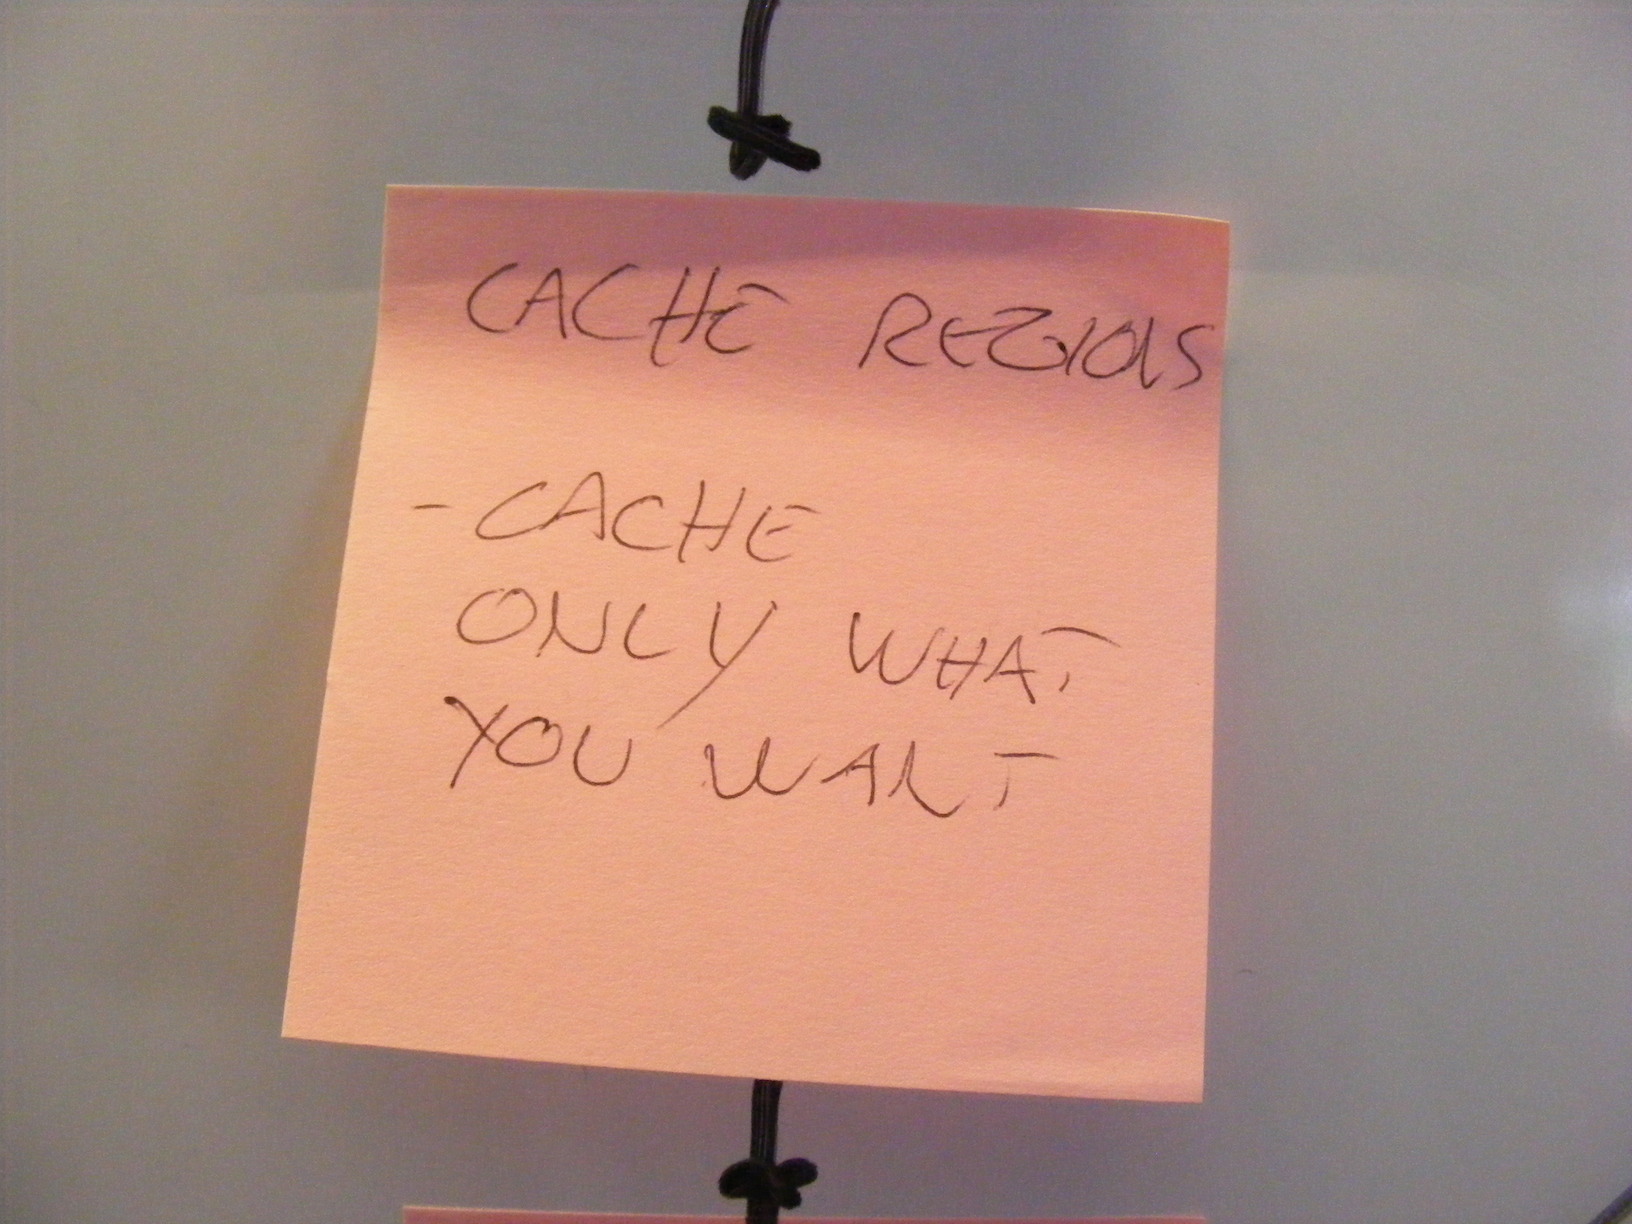 CACHE REGIONS
- CACHE
ONLY WHAT
YOU WANT